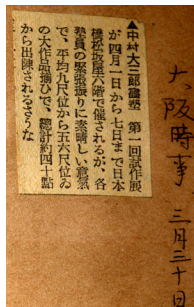 ▲中村大三郎畫塾 第一回試作展
が四月一日から七日まで日本
橋松坂屋六階で催されるが、各
塾員の緊張振りに素晴しい意氣
で、平均九尺位から五六尺位ゐ
の大作品揃ひで、總計約四十點
から出陳されるさうな
大阪時事 三月三十日